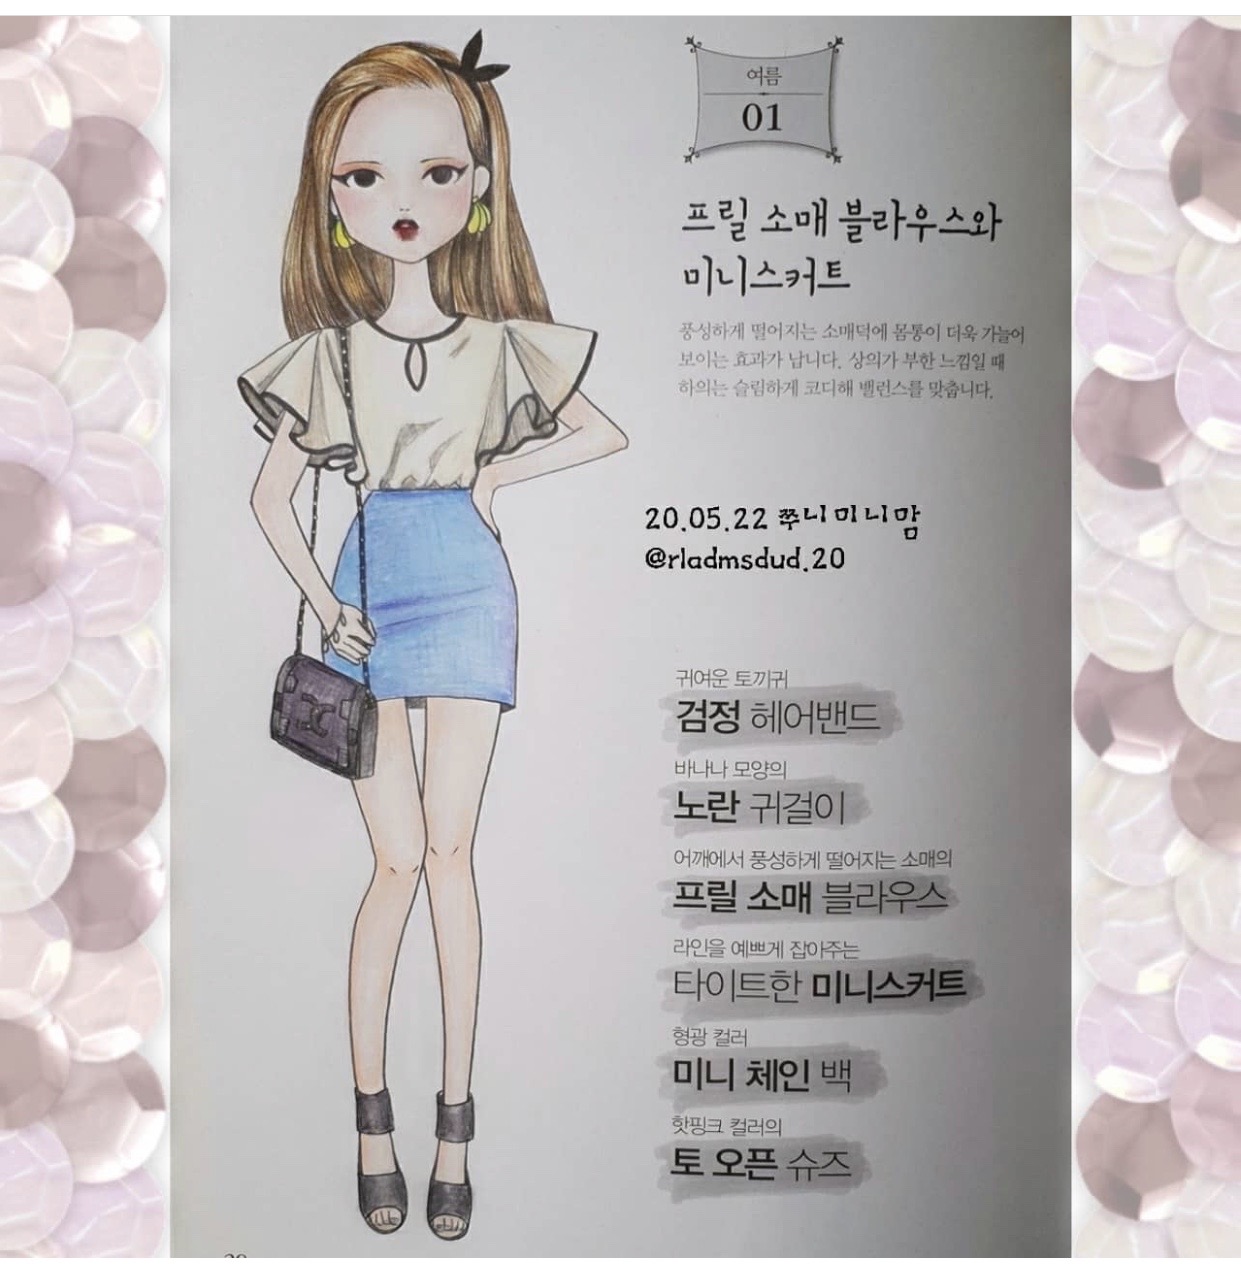 여름
01
프릴 소매 블라우스와
미니스커트
풍성하게 떨어지는 소매덕에 몸통이 더욱 가늘어
보이는 효과가 납니다. 상의가 부한 느낌일 때
하의는 슬림하게 코디해 밸런스를 맞춥니다.
20.05.22 쭈니미니맘
@rladmsdud.20
귀여운 토끼귀
검정 헤어밴드
바나나 모양의
노란 귀걸이
어깨에서 풍성하게 떨어지는 소매의
프릴 소매 블라우스
라인을 예쁘게 잡아주는
타이트한 미니스커트
형광 컬러
미니 체인 백
핫핑크 컬러의
토 오픈 슈즈